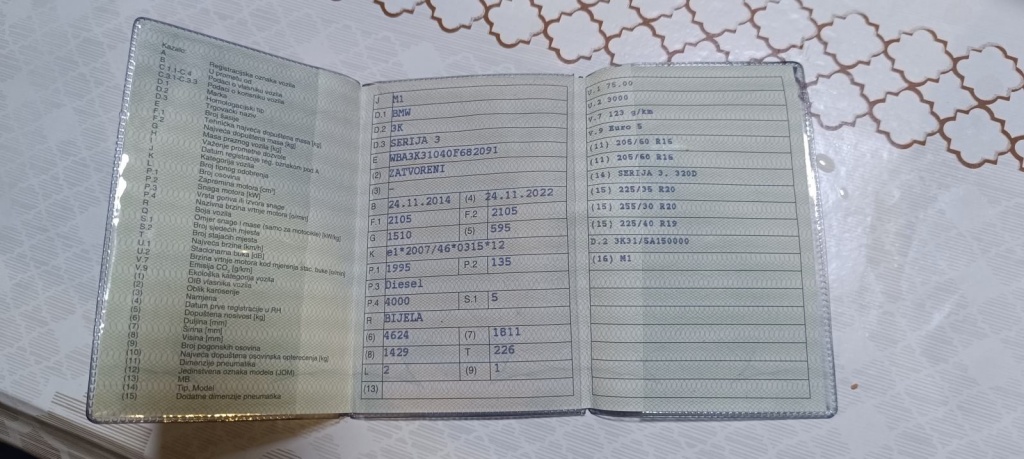 Kazalo:
A Registracijska oznaka vozila
B U prometu od
C.1.1-C.4 Podaci o vlasniku vozila
C.3.1-C.3.3 Podaci o korisniku vozila
D.1 Marka
D.2 Homologacijski tip
D.3 Trgovački naziv
E Broj šasije
F.1 Tehnička najveća dopuštena masa [kg]
F.2 Najveća dopuštena masa [kg]
G Masa praznog vozila [kg]
H Važenje prometne dozvole
I Datum registracije reg. oznakom pod A
J Kategorija vozila
K Broj tipnog odobrenja
L Broj osovina
P.1 Zapremina motora [cm³]
P.2 Snaga motora [kW]
P.3 Vrsta goriva ili izvora snage
P.4 Nazivna brzina vrtnje motora [o/min]
R Boja vozila
Q Omjer snage i mase (samo za motocikle) [kW/kg]
S.1 Broj sjedećih mjesta
S.2 Broj stajaćih mjesta
T Najveća brzina [km/h]
U.1 Stacionarna buka [dB]
U.2 Brzina vrtnje motora kod mjerenja stac. buke [o/min]
V.7 Emisija CO₂ [g/km]
V.9 Ekološka kategorija vozila
(1) OIB vlasnika vozila
(2) Oblik karoserije
(3) Namjena
(4) Datum prve registracije u RH
(5) Dopuštena nosivost [kg]
(6) Duljina [mm]
(7) Širina [mm]
(8) Visina [mm]
(9) Broj pogonskih osovina
(10) Najveća dopuštena osovinska opterećenja [kg]
(11) Dimenzije pneumatika
(12) Jedinstvena oznaka modela (JOM)
(13) MB
(14) Tip, Model
(15) Dodatne dimenzije pneumatika
J M1
D.1 BMW
D.2 3K
D.3 SERIJA 3
E WBA3K31040F682091
(2) ZATVORENI
(3) -
B 24.11.2014 (4) 24.11.2022
F.1 2105 F.2 2105
G 1510 (5) 595
K e1*2007/46*0315*12
P.1 1995 P.2 135
P.3 Diesel
P.4 4000 S.1 5
R BIJELA
(6) 4624 (7) 1811
(8) 1429 T 226
L 2 (9) 1
(13)
U.1 75.00
U.2 3000
V.7 123 g/km
V.9 Euro 5
(11) 205/60 R16
(11) 205/60 R16
(14) SERIJA 3, 320D
(15) 225/35 R20
(15) 255/30 R20
(15) 225/40 R19
D.2 3K31/5A150000
(16) M1